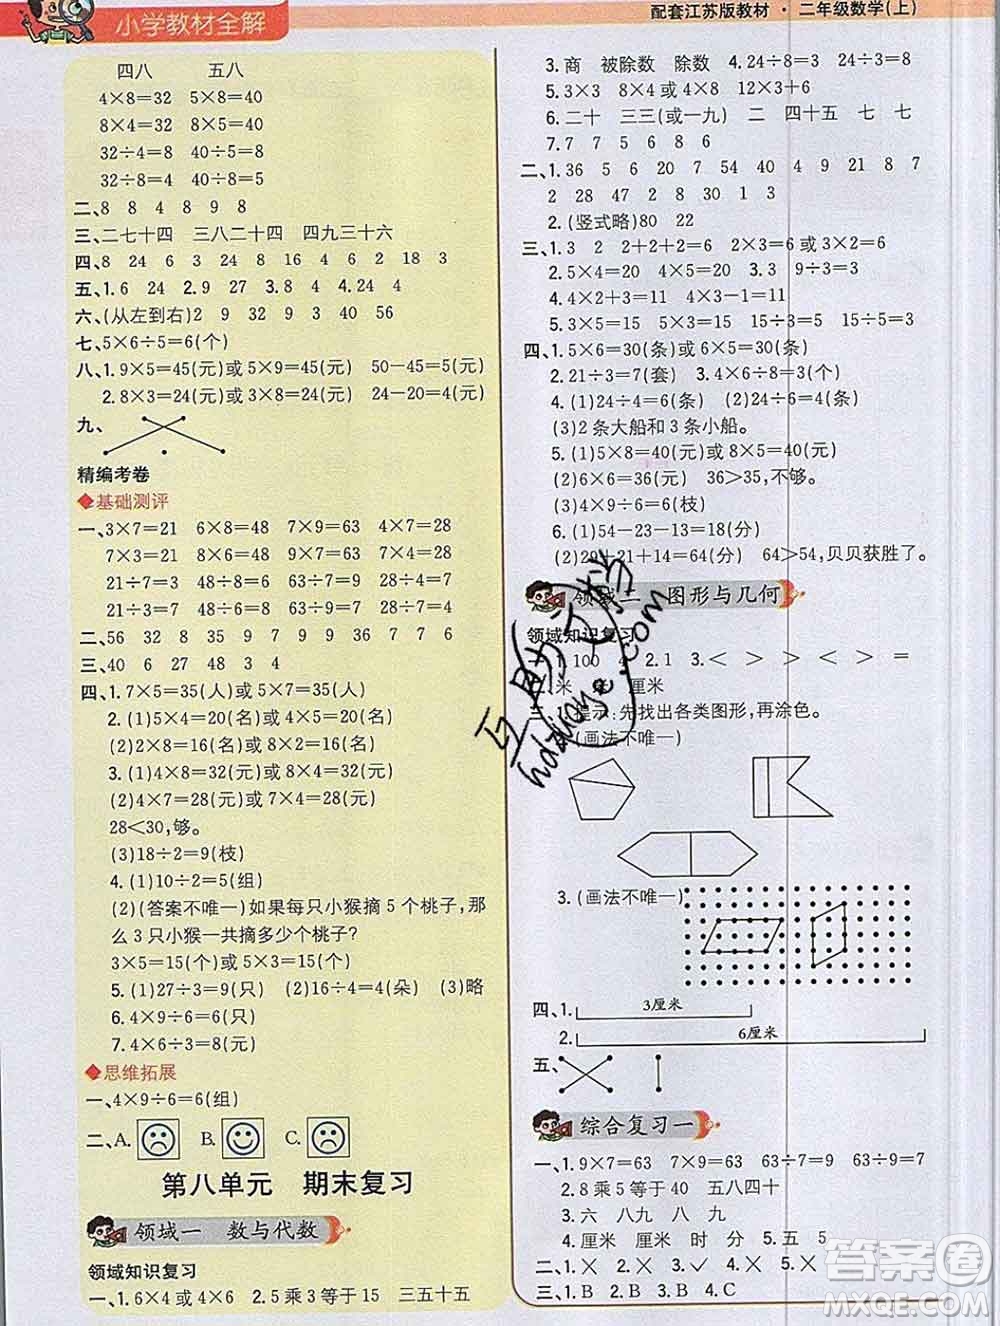 小学教材全解
配套江苏版教材·二年级数学(上)
四八 五八
4×8=32 5×8=40
8×4=32 8×5=40
32÷4=8 40÷5=8
32÷8=4 40÷8=5
二、8 8 4 8 9 8
三、二七十四 三八二十四 四九三十六
四、8 24 6 3 24 16 4 6 2 18 3
五、1.6 24 2.9 27 3.8 4 4.24 4
六、(从左到右)2 9 32 9 3 40 56
七、5×6÷5=6(个)
八、1.9×5=45(元)或5×9=45(元) 50-45=5(元)
2.8×3=24(元)或3×8=24(元) 24-20=4(元)
九、
精编考卷
◆基础测评
一、3×7=21 6×8=48 7×9=63 4×7=28
7×3=21 8×6=48 9×7=63 7×4=28
21÷7=3 48÷8=6 63÷9=7 28÷7=4
21÷3=7 48÷6=8 63÷7=9 28÷4=7
二、56 32 8 35 9 7 9 9 36 9
三、40 6 27 48 3 4
四、1.7×5=35(人)或5×7=35(人)
2.(1)5×4=20(名)或4×5=20(名)
(2)2×8=16(名)或8×2=16(名)
3.(1)4×8=32(元)或8×4=32(元)
(2)4×7=28(元)或7×4=28(元)
28<30,够。
(3)18÷2=9(枝)
4.(1)10÷2=5(组)
(2)(答案不唯一)如果每只小猴摘5个桃子,那
么3只小猴一共摘多少个桃子?
3×5=15(个)或5×3=15(个)
5.(1)27÷3=9(只) (2)16÷4=4(朵) (3)略
6.4×9÷6=6(只)
7.4×4÷2=8(元)
◆思维拓展
一、4×9÷6=6(组)
二、A. B. C.
第八单元 期末复习
领域一 数与代数
领域知识复习
一、1.6×4或4×6 2.5乘3等于15 三五十五
3.商 被除数 除数 4.24÷8=3 24÷3=8
5.3×3 8×4或4×8 12×3+6
6.二十 三三(或一九) 二 四十五 七 七
7.7 7 5 6 8 6
二、1.36 5 6 20 7 54 40 4 9 21 8 7
2 28 47 2 8 30 1 3
2.(竖式略)80 22
三、1.3 2 2+2+2=6 2×3=6或3×2=6
2.5×4=20 4×5=20 3.3 12÷4=3
4.4×2+3=11 4×3-1=11
5.3×5=15 5×3=15 15÷3=5 15÷5=3
四、1.5×6=30(条)或6×5=30(条)
2.21÷3=7(套) 3.4×6÷8=3(个)
4.(1)24÷6=4(条) (2)24÷4=6(条)
(3)2条大船和3条小船。
5.(1)5×8=40(元)或8×5=40(元)
(2)6×6=36(元) 36>35,不够。
(3)4×9÷6=6(枝)
6.(1)54-23-13=18(分)
(2)29+21+14=64(分) 64>54,贝贝获胜了。
领域二 图形与几何
领域知识复习
100 2.1 3.< > > < > =
米 厘米
提示:先找出各类图形,再涂色。
(画法不唯一)
3.(画法不唯一)
四、1. 3厘米
2. 6厘米
五、
综合复习一
一、1.9×7=63 7×9=63 63÷7=9 63÷9=7
2.8乘5等于40 五八四十
3.六 八九 八 九
4.厘米 厘米 时 分 5.五 5
二、1.× 2.× 3.✓ 4.× 5.×
三、1.B 2.B 3.B 4.C
互助文档
hdzliange.com
答案圈
MXQE.COM